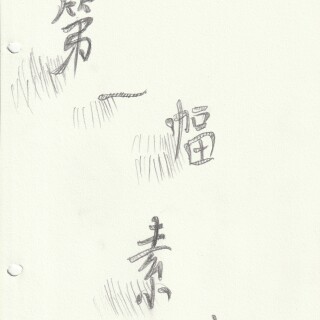 第一幅
素